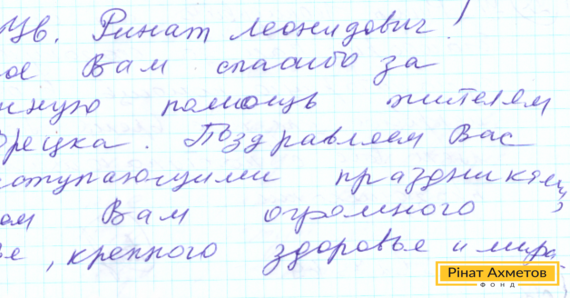 Ув. Ринат Леонидович!
ое Вам спасибо за
нную помощь жителям
орецка. Поздравляем Вас
оступающими праздниками,
ом Вам огромного
ье, крепкого здоровье и мира
Рінат Ахметов
ФОНД